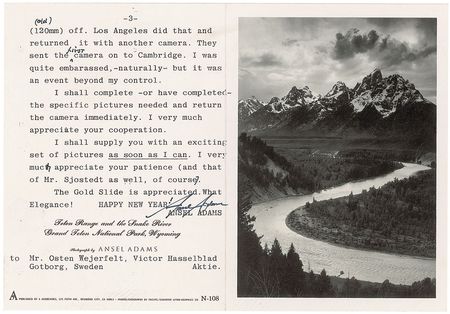 -3-
(old)
(120mm) off. Los Angeles did that and
returned it with another camera. They
sent the first camera on to Cambridge. I was
quite embarassed,-naturally- but it was
an event beyond my control.
I shall complete -or have completed-
the specific pictures needed and return
the camera immediately. I very much
appreciate your cooperation.
I shall supply you with an exciting
set of pictures as soon as I can. I very
much appreciate your patience (and that
of Mr. Sjostedt as well, of course).
The Gold Slide is appreciated. What
Elegance! HAPPY NEW YEAR!
Ansel Adams
ANSEL ADAMS
Teton Range and the Snake River
Grand Teton National Park, Wyoming
Photograph by ANSEL ADAMS
to Mr. Osten Wejerfelt, Victor Hasselblad
Gotborg, Sweden Aktie.
N-108